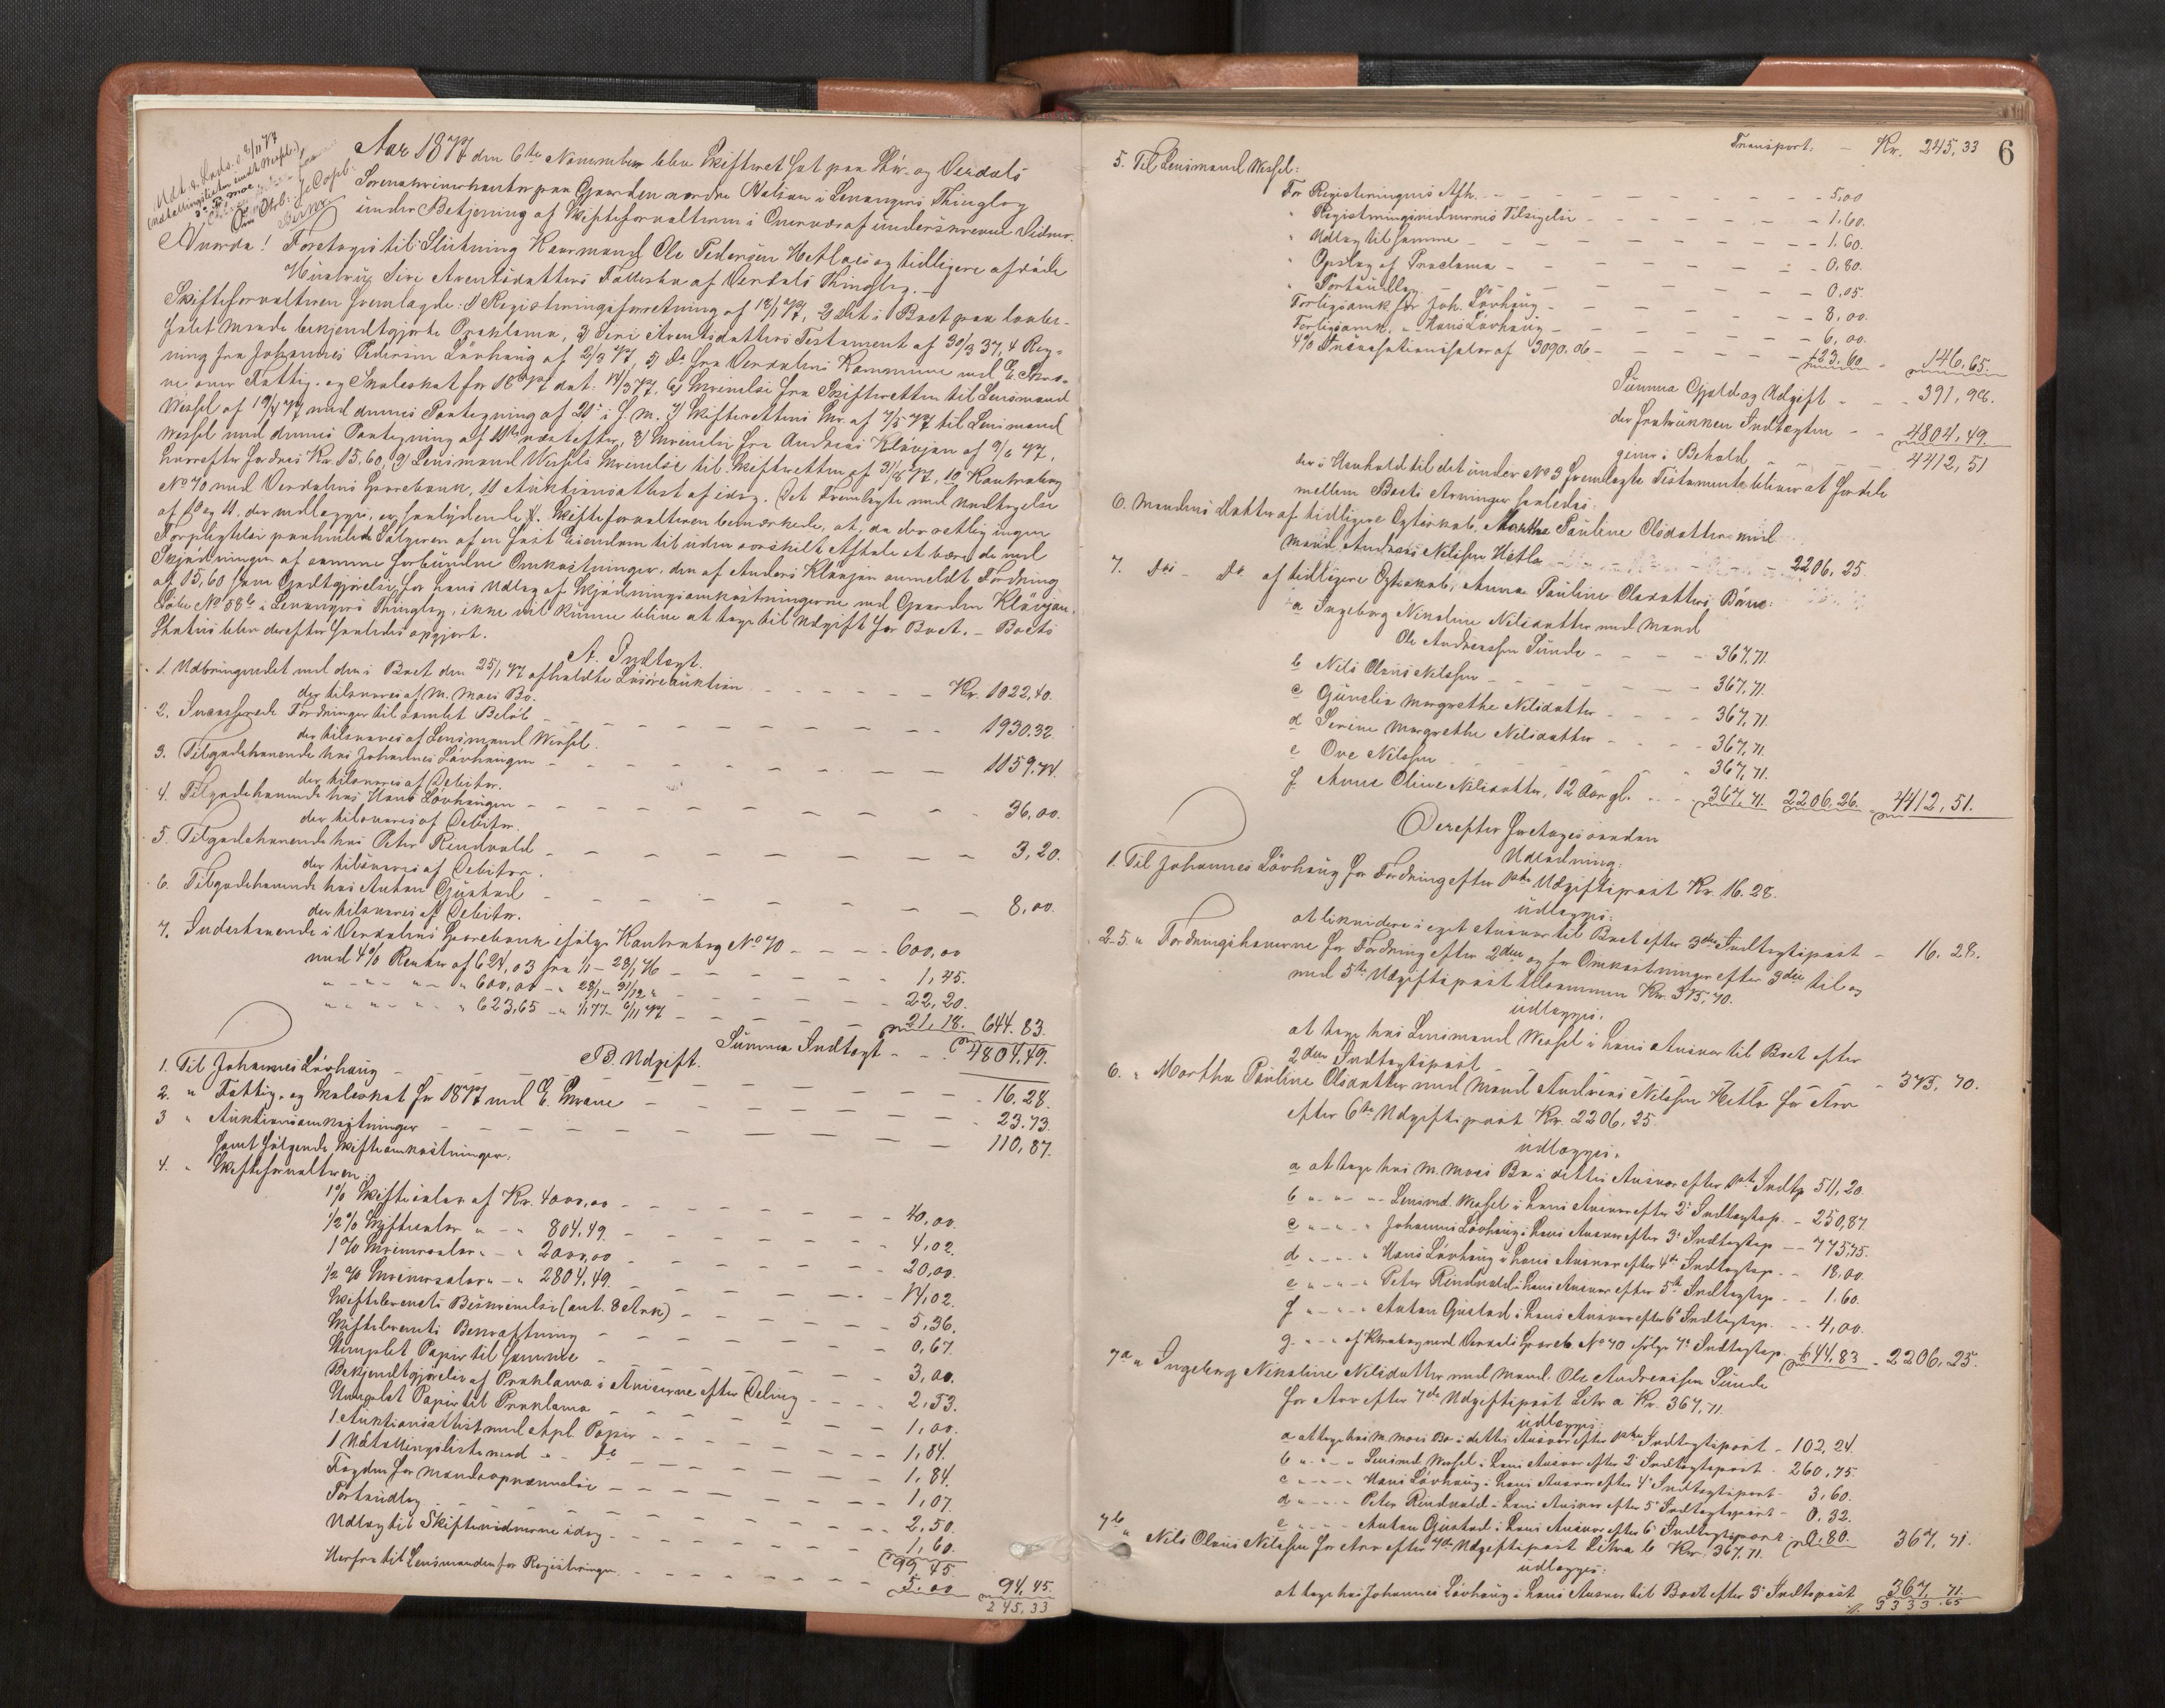 Aar 1877 den 6te November blev Skifteret sat paa Stør- og Værdals
Sorenskriverkontor paa Gaarden nordre Nelson i Levangers Thinglag
under Betjening af Skifteforvalteren i Overvær af underskrevne Vidner.
Hvorda! Foretoges til Slutning Kaarmand Ole Pedersen Hetloes og tidligere afdøde
Hustru Siri Arentsdatters Fællesbo af Værdals Thinglag. –
Skifteforvalteren fremlagde: 1) Registreringsforretning af 18/1 77, 2 det i Boet paa lovbe-
falet Maade bekjendtgjorte Proklama, 3) Siri Arentsdatters Testament af 30/3 37, 4 Reg-
ning fra Johannes Pedersen Løvhaug af 2/3 77, 5) Do fra Værdalens Kommune ved E. Skra-
ve over Fattig- og Skoleskat for 1877 dat. 14/3 77, 6) Skrivelse fra Skifteretten til Lensmand
Wessel af 19/4 77 med dennes Paategning af 20de i s. M. 7) Skifterettens Skr. af 7/5 77 til Lensmand
Wessel med dennes Paategning af 11te næstefter, 8) Skrivelse fra Andreas Kløvjan af 9/6 77,
hvorefter fordres Kr. 15.60, 9) Lensmand Wessels Skrivelse til Skifteretten af 31/8 77, 10) Kontrabog
No 70 med Værdalens Sparebank, 11 Auktionsattest af idag. Det Fremlagte med Undtagelse
af 10 og 11, der vedlægges, er saalydende //. Skifteforvalteren bemærkede, at, da der retlig ingen
Forpligtelse paahviler Sælgeren af en fast Eiendom til uden særskilt Aftale at bære de med
Skjødningen af samme forbundne Omkostninger, den af Anders Kløvjan anmeldt Fordring
af 15,60 som Godtgjørelse for hans Udlæg af Skjødningsomkostningerne ved Gaarden Kløvjan,
Løbe No 58b i Levangers Thinglag, ikke vil kunne blive at tage til Udgift for Boet. – Boets
Status blev derefter saaledes opgjort.
A. Indtægt.
1. Udbringendet ved den i Boet den 25/1 77 afholdte Løsøreauktion – – – Kr. 1022,40.
der tilsvares af M. Moes Bo.
2. Inkasserede Fordringer til samlet Beløb – – – 1930.32.
der tilsvares af Lensmand Wessel.
3. Tilgodehavende hos Johannes Løvhaugen – – – 1159.74.
der tilsvares af Debitor.
4. Tilgodehavende hos Hans Løvhaugen – – – 36,00.
der tilsvares af Debitor.
5. Tilgodehavende hos Peter Rindvald – – – 3,20.
der tilsvares af Debitor.
6. Tilgodehavende hos Anton Gjustad – – – 8,00.
der tilsvares af Debitor.
7. Indestaaende i Værdalens Sparebank ifølge Kontrabog No 70 – – – 600,00
med 4% Renter af 624,03 fra 1/1 – 28/1 76 – – – 1,45.
" – " – " – " 600,00 – " 28/1 – 31/12 " – – – 22,20.
" " " " " 623,65 – " 1/1 77 – 6/11 77 – – – 21.18. 644.83.
Summa Indtægt – – 4804,49.
B. Udgift.
1. Til Johannes Løvhaug – – – 16.28.
2. " Fattig- og Skoleskat for 1877 ved E. Skrave – – – 23.73.
3 " Auktionsomkostninger – – – 110,87.
samt følgende Skifteomkostninger:
4. " Skifteforvalteren:
1% Skiftesalær af Kr. 4000,00 – – – 40,00.
1/2% Skiftesalær " – " 804,49. – – – 4,02.
1% Skriversalær " – " 2000,00 – – – 20,00.
1/2 % Skriversalær " – " 2804,49. – – – 14,02.
Skiftebrevets Beskrivelse (ant. 8 Ark) – – – 5,36.
Skiftebrevets Bekræftning – – – 0,67.
Stemplet Papir til samme – – – 3,00.
Bekjendtgjørelse af Proklama i Aviserne efter Deling – – – 2,53.
Stemplet Papir til Proklama – – – 1,00.
1 Auktionsattest med stpl. Papir – – – 1,84.
1 Udtællingsliste med " – Do – – – 1,84.
Fogden for Mandsopnævnelse – – – 1,07.
Portoudlæg – – – 2,50.
Udlæg til Skiftevidnerne idag – – – 1,60.
99,45.
Herfra til Lensmanden for Registreringen – – – 5,00 94,45.
245,33
6
Transport: – Kr. 245,33
5. Til Lensmand Wessel:
For Registreringens Afh. – – – 5,00
" Registreringsvidnernes Tilsigelse – – – 1,60.
" Udlæg til samme – – – 1.60.
" Opslag af Proclama – – – 0,80.
" Portoudlæg – – – 0,05.
Forligsomk. for Joh. Løvhaug – – – 8,00.
Forligsomk. " – Hans Løvhaug – – – 6,00.
4% Incassationssalær af 3090.06 – – – 123.60 – 146,65.
Summa Gjæld og Udgift – – 391,98.
der fratrukken Indtægten – – 4804,49.
giver i Behold – – – 4412,51
der i Henhold til det under No 3 fremlagte Testamente bliver at fordele
mellem Boets Arvinger saaledes:
6. Mandens Datter af tidligere Egteskab, Martha Pauline Olsdatter med
Mand Andreas Nilssen Hetlo – – – 2206,25.
7. Dos – Do af tidligere Egteskab, Anna Pauline Olsdatters Børn:
a Ingeborg Nikoline Nilsdatter med Mand
Ole Andreassen Sunde – – – 367,71.
b Nils Olaus Nilssen – – – 367,71.
c Gunelia Margrethe Nilsdatter – – – 367,71.
d Serine Margrethe Nilsdatter – – – 367,71.
e Ove Nilssen – – – 367,71.
f. Anne Oline Nilsdatter, 12 Aar gl. – – 367,71. 2206,26. 4412,51.
Derefter foretoges saadan
Udlodning:
1. Til Johannes Løvhaug for Fordring efter 1ste Udgiftspost Kr. 16.28.
udlægges:
at likvidere i eget Ansvar til Boet efter 3die Indtægtspost – 16.28.
2–5. " Fordringshaverne for Fordring efter 2den og for Omkostninger efter 3die til og
med 5te Udgiftspost tilsammen Kr. 375,70.
udlægges:
at tage hos Lensmand Wessel i hans Ansvar til Boet efter
2den Indtægtspost – – – 375,70.
6. " Martha Pauline Olsdatter med Mand Andreas Nilssen Hetlo for Arv
efter 6te Udgiftspost Kr. 2206,25.
udlægges:
a at tage hos M. Moes Bo i dettes Ansvar efter 1ste Indtp. 511,20.
b " – " – " – Lensmd. Wessel i hans Ansvar efter 2d Indtægtsp. – 250,87.
c " – " – " Johannes Løvhaug i hans Ansvar efter 3d Indtægtsp. – – 775,75.
d " – " – " Hans Løvhaug i hans Ansvar efter 4de Indtægtsp. – – 18,00.
e " – " – " Peter Rindvald i hans Ansvar efter 5te Indtægtsp. – – 1.60.
f " – " – " Anton Gjustad i hans Ansvar efter 6te Indtægtsp. – – 4,00.
g. " – " af Ktrabog med Værdals Spareb. No 70 ifølge 7de Indtægtsp. 644,83 – 2206,25.
7a " Ingeborg Nikoline Nilsdatter med Mand Ole Andreassen Sunde
for Arv efter 7de Udgiftspost Litr a Kr. 367,71.
udlægges:
a at tage hos M. Moes Bo i dettes Ansvar efter 1ste Indtægtspost – 102,24.
b " – " – " Lensmd. Wessel i hans Ansvar efter 2d Indtægtspost – 260,75.
c " – " – " Hans Løvhaug i hans Ansvar efter 4d Indtægtspost – 3,60.
d " – " – " Peter Rindvald i hans Ansvar efter 5d Indtægtspost – 0,32.
e " – " – " Anton Gjustad i hans Ansvar efter 6d Indtægtspost – 0,80. 367,71.
7b " Nils Olaus Nilssen for Arv efter 7de Udgiftspost Litra b Kr. 367,71.
udlægges:
at tage hos Johannes Løvhaug i hans Ansvar til Boet efter 3d Indtspost 367,71.
3333.65